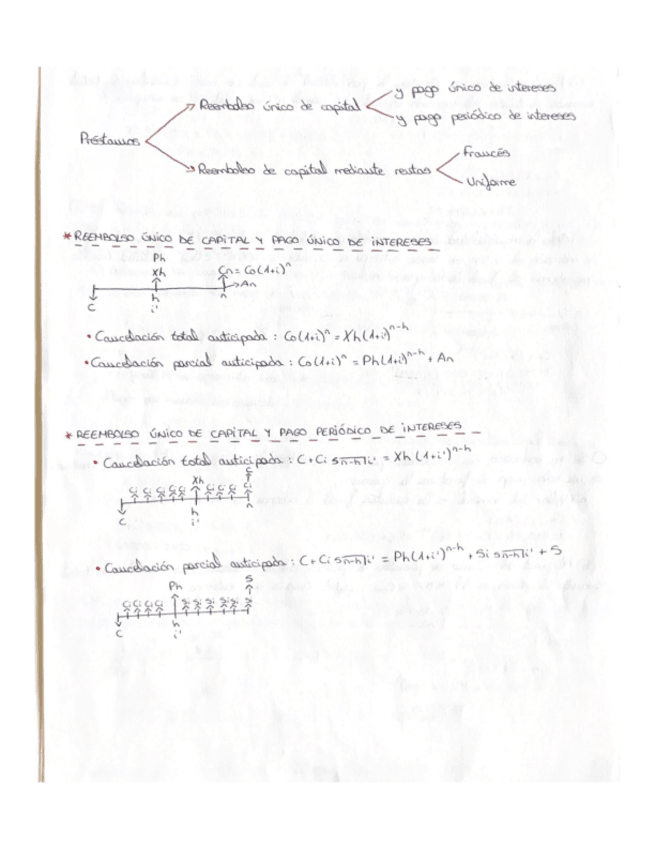 Préstamos
Reembolso único de capital
y pago único de intereses
y pago periódico de intereses
Reembolso de capital mediante rentas
Francés
Uniforme
* REEMBOLSO ÚNICO DE CAPITAL Y PAGO ÚNICO DE INTERESES
Ph
Xh
Cn = Co(1+i)^n
An
C
h
n
i'
• Cancelación total anticipada : Co(1+i)^n = Xh(1+i)^n-h
• Cancelación parcial anticipada : Co(1+i)^n = Ph(1+i)^n-h + An
* REEMBOLSO ÚNICO DE CAPITAL Y PAGO PERIÓDICO DE INTERESES
• Cancelación total anticipada : C + Ci s n-h i' = Xh (1+i')^n-h
C
Xh
Ci Ci Ci Ci Ci Ci Ci Ci
C
h
n
i'
• Cancelación parcial anticipada : C + Ci s n-h i' = Ph(1+i')^n-h + Si s n-h i' + S
Ph
S
Ci Ci Ci Ci Si Si Si Si Si Si
C
h
i'